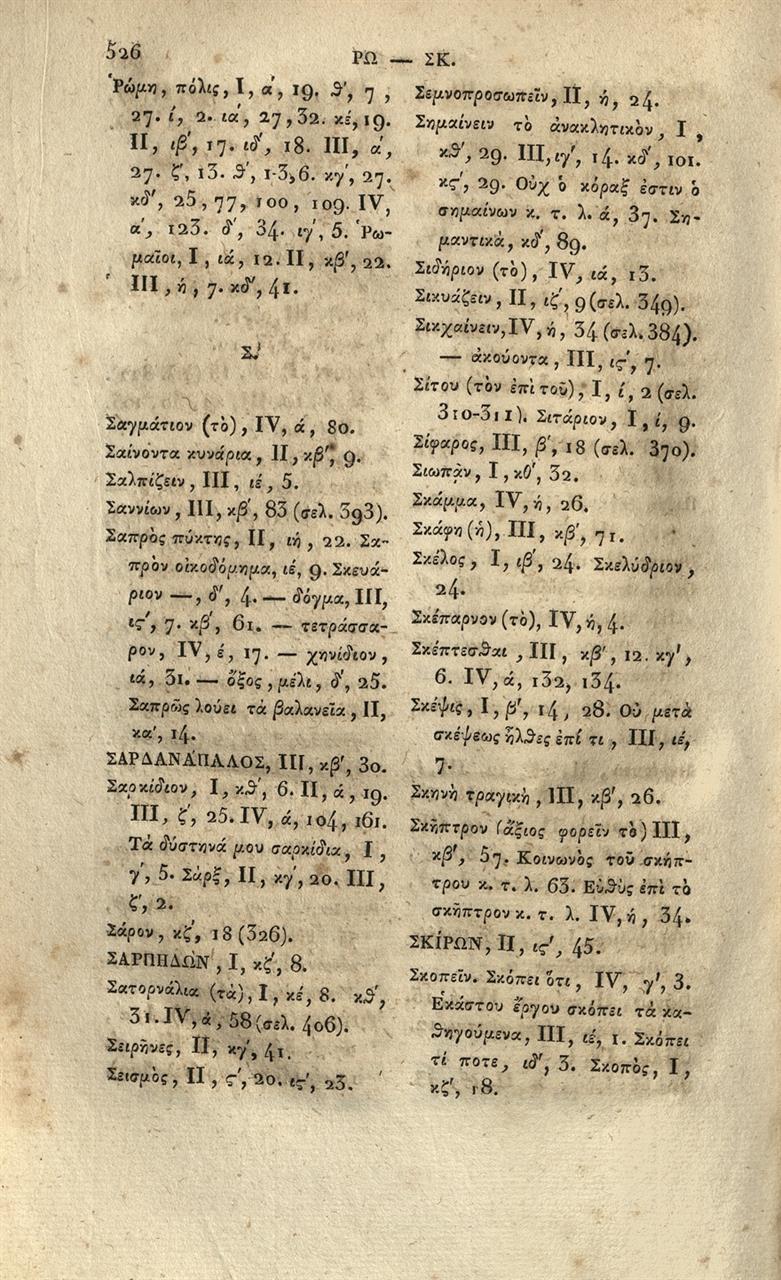 526
ΡΩ — ΣΚ.
Ῥώμη, πόλις, I, ά, 19. θ', 7,
27. ί, 2. ιά, 27, 32. κέ, 19.
II, ιβ', 17. ιδ', 18. III, ά,
27. ζ', 13. θ', 1-3, 6. κγ', 27.
κδ', 25, 77, 100, 109. IV,
ά, 123. δ', 34. ιγ', 5. Ῥω-
μαῖοι, I, ιά, 12. II, κβ', 22.
III, ή, 7. κδ', 41.
Σ.
Σαγμάτιον (τὸ), IV, ά, 80.
Σαίνοντα κυνάρια, II, κβ', 9.
Σαλπίζειν, III, ιέ, 5.
Σαννίων, III, κβ', 83 (σελ. 393).
Σαπρὸς πύκτης, II, ιή, 22. Σα-
πρὸν οἰκοδόμημα, ιέ, 9. Σκευά-
ριον —, δ', 4. — δόγμα, III,
ις', 7. κβ', 61. — τετράσσα-
ρον, IV, έ, 17. — χηνίδιον,
ιά, 31. — ὄξος, μέλι, δ', 25.
Σαπρῶς λούει τὰ βαλανεῖα, II,
κα', 14.
ΣΑΡΔΑΝΑΠΑΛΟΣ, III, κβ', 30.
Σαρκίδιον, I, κθ', 6. II, ά, 19.
III, ζ', 25. IV, ά, 104, 161.
Τὰ δύστηνά μου σαρκίδια, I,
γ', 5. Σὰρξ, II, κγ', 20. III,
ζ', 2.
Σάρον, κζ', 18 (326).
ΣΑΡΠΗΔΩΝ, I, κζ', 8.
Σατορνάλια (τὰ), I, κέ, 8. κθ',
31. IV, ά, 58 (σελ. 406).
Σειρῆνες, II, κγ', 41.
Σεισμὸς, II, ς', 20. ις', 23.
Σεμνοπροσωπεῖν, II, ή, 24.
Σημαίνειν τὸ ἀνακλητικὸν, I,
κθ', 29. III, ιγ', 14. κδ', 101.
κς', 29. Οὐχ ὁ κόραξ ἐστιν ὁ
σημαίνων κ. τ. λ. ά, 37. Ση-
μαντικὰ, κδ', 89.
Σιδήριον (τὸ), IV, ιά, 13.
Σικυάζειν, II, ιζ', 9 (σελ. 349).
Σικχαίνειν, IV, ή, 34 (σελ. 384).
— ἀκούοντα, III, ις', 7.
Σίτου (τὸν ἐπὶ τοῦ), I, ί, 2 (σελ.
310-311). Σιτάριον, I, ί, 9.
Σίφαρος, III, β', 18 (σελ. 370).
Σιωπᾷν, I, κθ', 32.
Σκάμμα, IV, ή, 26.
Σκάφη (ἡ), III, κβ', 71.
Σκέλος, I, ιβ', 24. Σκελύδριον,
24.
Σκέπαρνον (τὸ), IV, ή, 4.
Σκέπτεσθαι, III, κβ', 12. κγ',
6. IV, ά, 132, 134.
Σκέψις, I, β', 14, 28. Οὐ μετὰ
σκέψεως ἦλθες ἐπί τι, III, ιέ,
7.
Σκηνὴ τραγικὴ, III, κβ', 26.
Σκῆπτρον (ἄξιος φορεῖν τὸ) III,
κβ', 57. Κοινωνὸς τοῦ σκήπ-
τρου κ. τ. λ. 63. Εὐθὺς ἐπὶ τὸ
σκῆπτρον κ. τ. λ. IV, ή, 34.
ΣΚΙΡΩΝ, II, ις', 45.
Σκοπεῖν. Σκόπει ὅτι, IV, γ', 3.
Ἑκάστου ἔργου σκόπει τὰ κα-
θηγούμενα, III, ιέ, 1. Σκόπει
τί ποτε, ιδ', 3. Σκοπὸς, I,
κζ', 18.